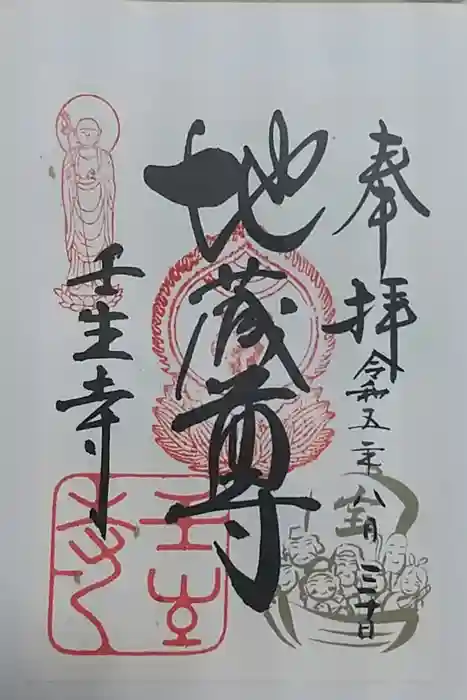 奉拝
令和五年八月三十日
地蔵尊
壬生寺
壬生寺
宝